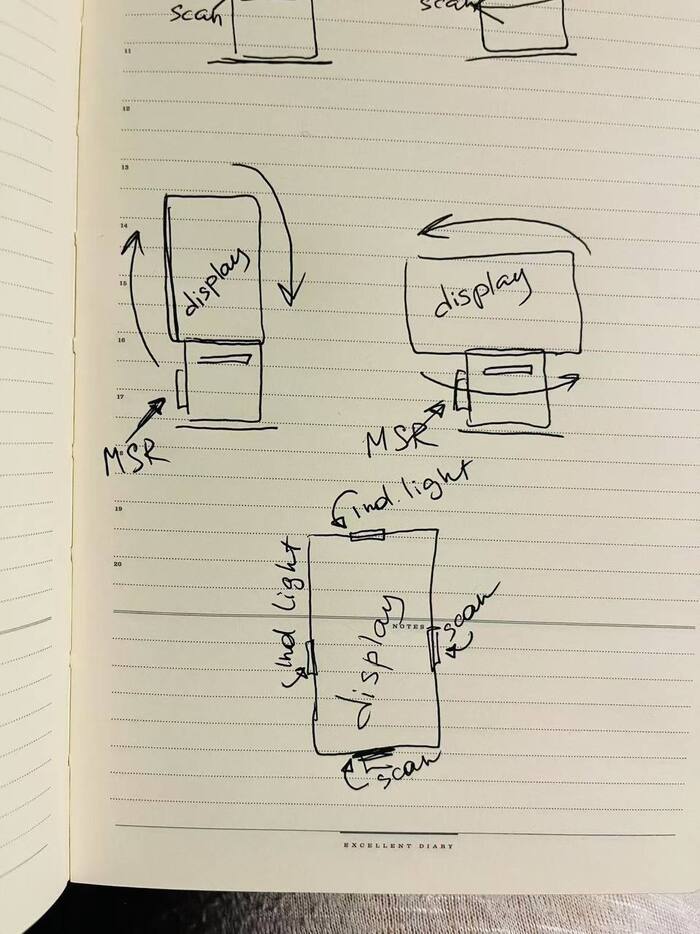 scan
scan
11
12
13
14
15
16
17
display
display
MSR
MSR
19
ind. light
20
Ind light
display
scan
NOTES
scan
EXCELLENT DIARY